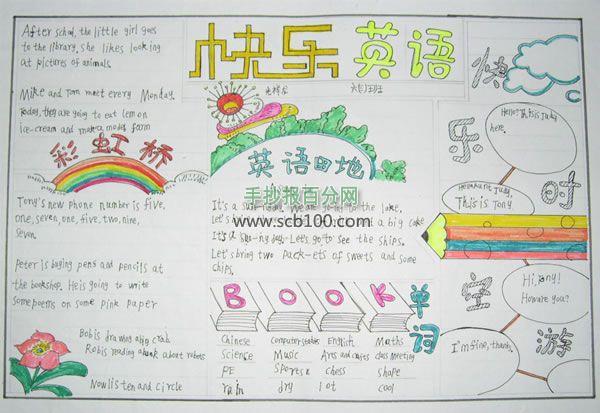 快乐英语
六(1)班
After school, the little girl goes
to the library, she likes looking
at pictures of animals.
Mike and Tom meet every Monday.
Today, they are going to eat lemon
ice-cream and make a model farm
彩虹桥
Tony's new phone number is five,
one, seven, one, five, two, nine,
seven.
Peter is buying pens and pencils at
the bookshop. He is going to write
some poems on some pink paper
Bob is drawing a big crab
Rob is reading a book about robots
Now listen and circle
英语田地
手抄报百分网
www.scb100.com
It's a
to the lake.
Let's
a big cake
It's a sun-ny day. Let's go to see the ships.
Let's bring two pack-ets of sweets and some
chips.
BOOK单词
Chinese Computer studies English Maths
Science Music Arts and crafts class meeting
PE Sports chess shape
rain dry lot cool
快乐时宝游
Hello! This is Judy
here.
This is Tony
Hi, Tony!
How are you?
I'm fine, thanks.